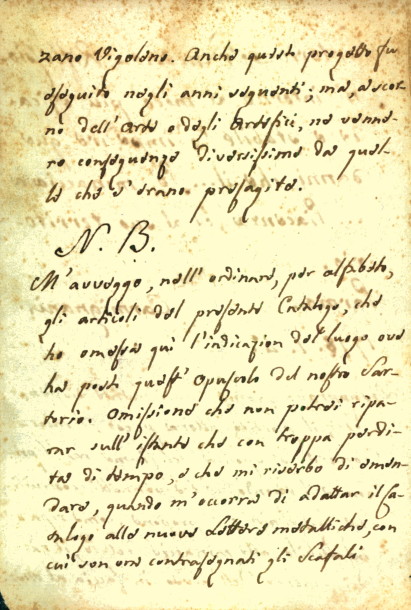 zano Vigoleno. Anche questo progetto fu
eseguito negli anni seguenti; ma, a scor-
no dell'Arte e degli Artefici, ne venne-
ro conseguenze diversissime da quel-
le che s'erano presagite.
N. B.
M'avveggo, nell'ordinare, per alfabeto,
gli articoli del presente Catalogo, che
ho omessa qui l'indicazion del luogo ove
ha posto quest'Opuscolo del nostro Sar-
torio. Omissione che non potrei ripa-
rar sull'istante che con troppa perdi-
ta di tempo, e che mi riserbo di emen-
dare, quando m'occorra di adattar il Ca-
talogo alle nuove Lettere metalliche, con
cui son ora contrasegnati gli Scafali